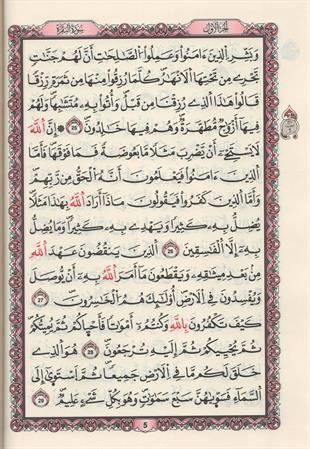 الجزء الأول
سورة البقرة
وَبَشِّرِ الَّذِينَ ءَامَنُوا وَعَمِلُوا الصَّالِحَاتِ أَنَّ لَهُمْ جَنَّاتٍ
تَجْرِي مِن تَحْتِهَا الْأَنْهَارُ كُلَّمَا رُزِقُوا مِنْهَا مِن ثَمَرَةٍ رِّزْقًا
قَالُوا هَٰذَا الَّذِي رُزِقْنَا مِن قَبْلُ وَأُتُوا بِهِ مُتَشَابِهًا وَلَهُمْ
فِيهَا أَزْوَاجٌ مُّطَهَّرَةٌ وَهُمْ فِيهَا خَالِدُونَ 25 إِنَّ اللَّهَ
لَا يَسْتَحْيِي أَن يَضْرِبَ مَثَلًا مَّا بَعُوضَةً فَمَا فَوْقَهَا فَأَمَّا
الَّذِينَ ءَامَنُوا فَيَعْلَمُونَ أَنَّهُ الْحَقُّ مِن رَّبِّهِمْ
وَأَمَّا الَّذِينَ كَفَرُوا فَيَقُولُونَ مَاذَا أَرَادَ اللَّهُ بِهَٰذَا مَثَلًا
يُضِلُّ بِهِ كَثِيرًا وَيَهْدِي بِهِ كَثِيرًا وَمَا يُضِلُّ
بِهِ إِلَّا الْفَاسِقِينَ 26 الَّذِينَ يَنقُضُونَ عَهْدَ اللَّهِ
مِن بَعْدِ مِيثَاقِهِ وَيَقْطَعُونَ مَا أَمَرَ اللَّهُ بِهِ أَن يُوصَلَ
وَيُفْسِدُونَ فِي الْأَرْضِ أُولَٰئِكَ هُمُ الْخَاسِرُونَ 27
كَيْفَ تَكْفُرُونَ بِاللَّهِ وَكُنتُمْ أَمْوَاتًا فَأَحْيَاكُمْ ثُمَّ يُمِيتُكُمْ
ثُمَّ يُحْيِيكُمْ ثُمَّ إِلَيْهِ تُرْجَعُونَ 28 هُوَ الَّذِي
خَلَقَ لَكُم مَّا فِي الْأَرْضِ جَمِيعًا ثُمَّ اسْتَوَىٰ إِلَى
السَّمَاءِ فَسَوَّاهُنَّ سَبْعَ سَمَاوَاتٍ وَهُوَ بِكُلِّ شَيْءٍ عَلِيمٌ 29
5